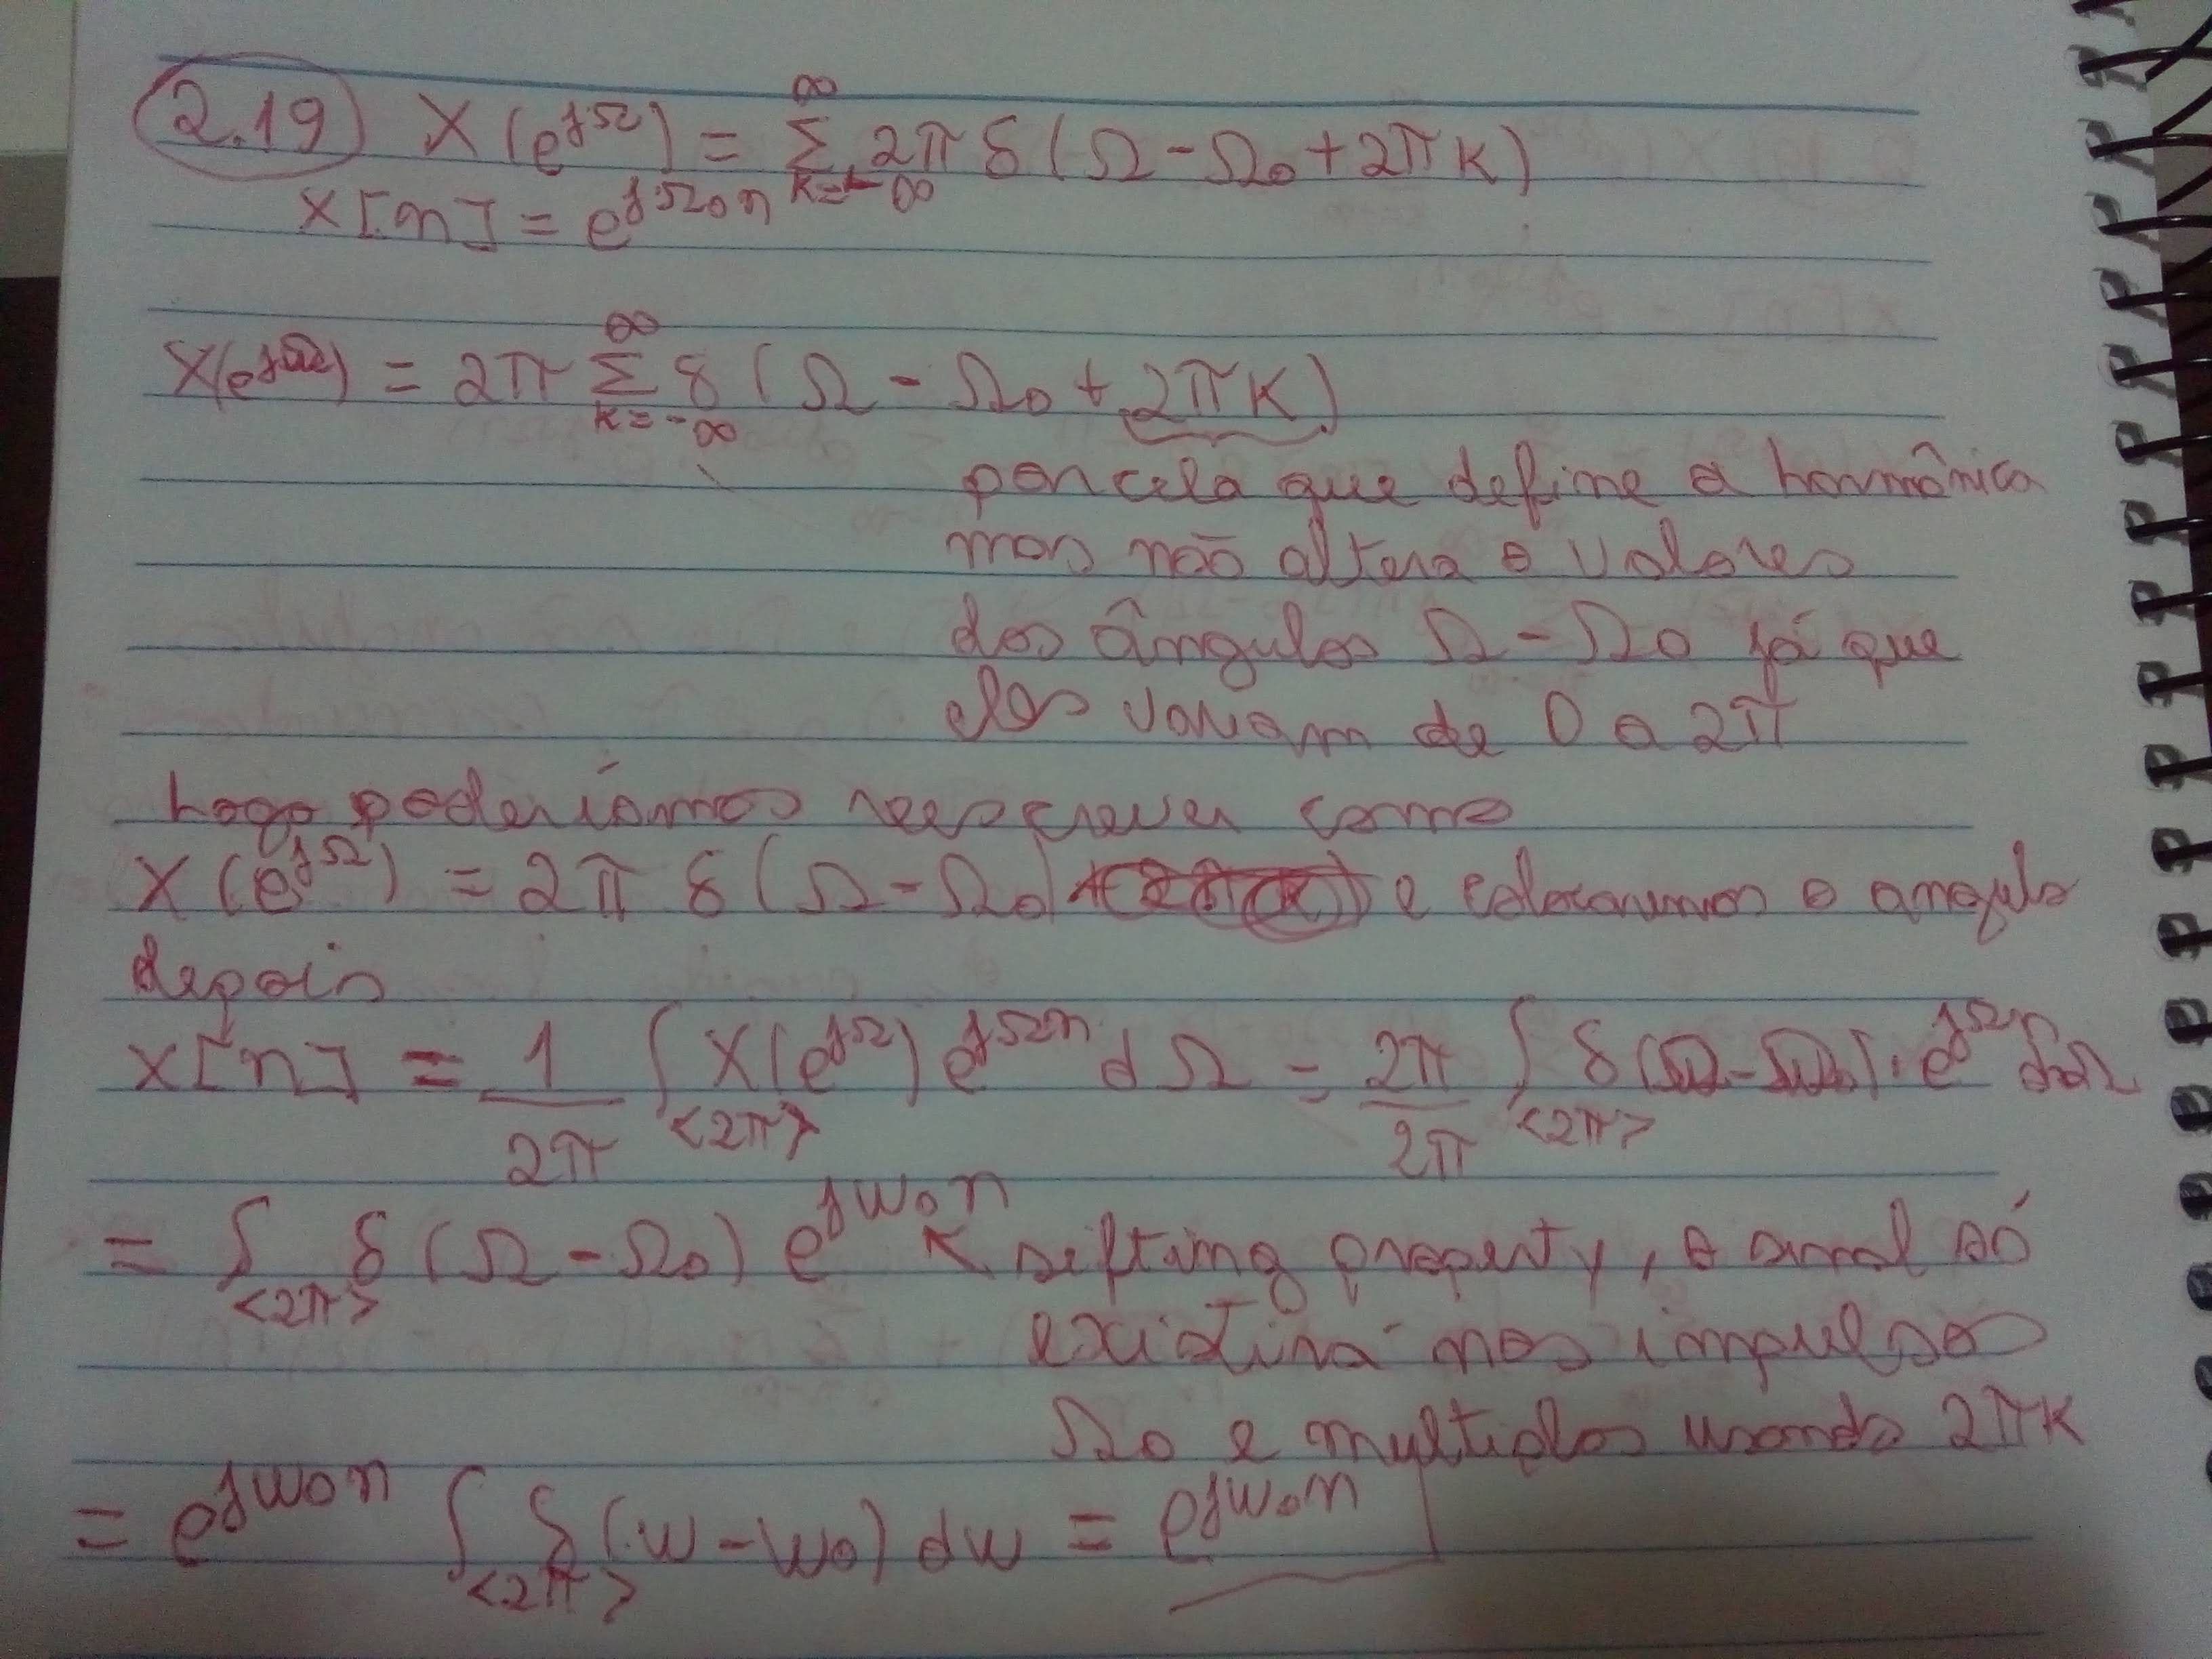 2.19 X(e^{jΩ}) = ∑_{k=-∞}^{∞} 2π δ(Ω - Ω₀ + 2πk)
x[n] = e^{jΩ₀n}
X(e^{jΩ}) = 2π ∑_{k=-∞}^{∞} δ(Ω - Ω₀ + 2πk)
parcela que define a harmônica
mas não altera o valores
dos ângulos Ω - Ω₀ já que
eles variam de 0 a 2π
Logo poderíamos reescrever como
X(e^{jΩ}) = 2π δ(Ω - Ω₀) e colocarmos o angulo
depois
x[n] = 1/2π ∫_{<2π>} X(e^{jΩ}) e^{jΩn} dΩ = 2π/2π ∫_{<2π>} δ(Ω - Ω₀) · e^{jΩn} dΩ
= ∫_{<2π>} δ(Ω - Ω₀) e^{jw₀n} sifting property, o sinal só
existirá nos impulsos
Ω₀ e multiplos usando 2πk
= e^{jw₀n} ∫_{<2π>} δ(w - w₀) dw = e^{jw₀n}